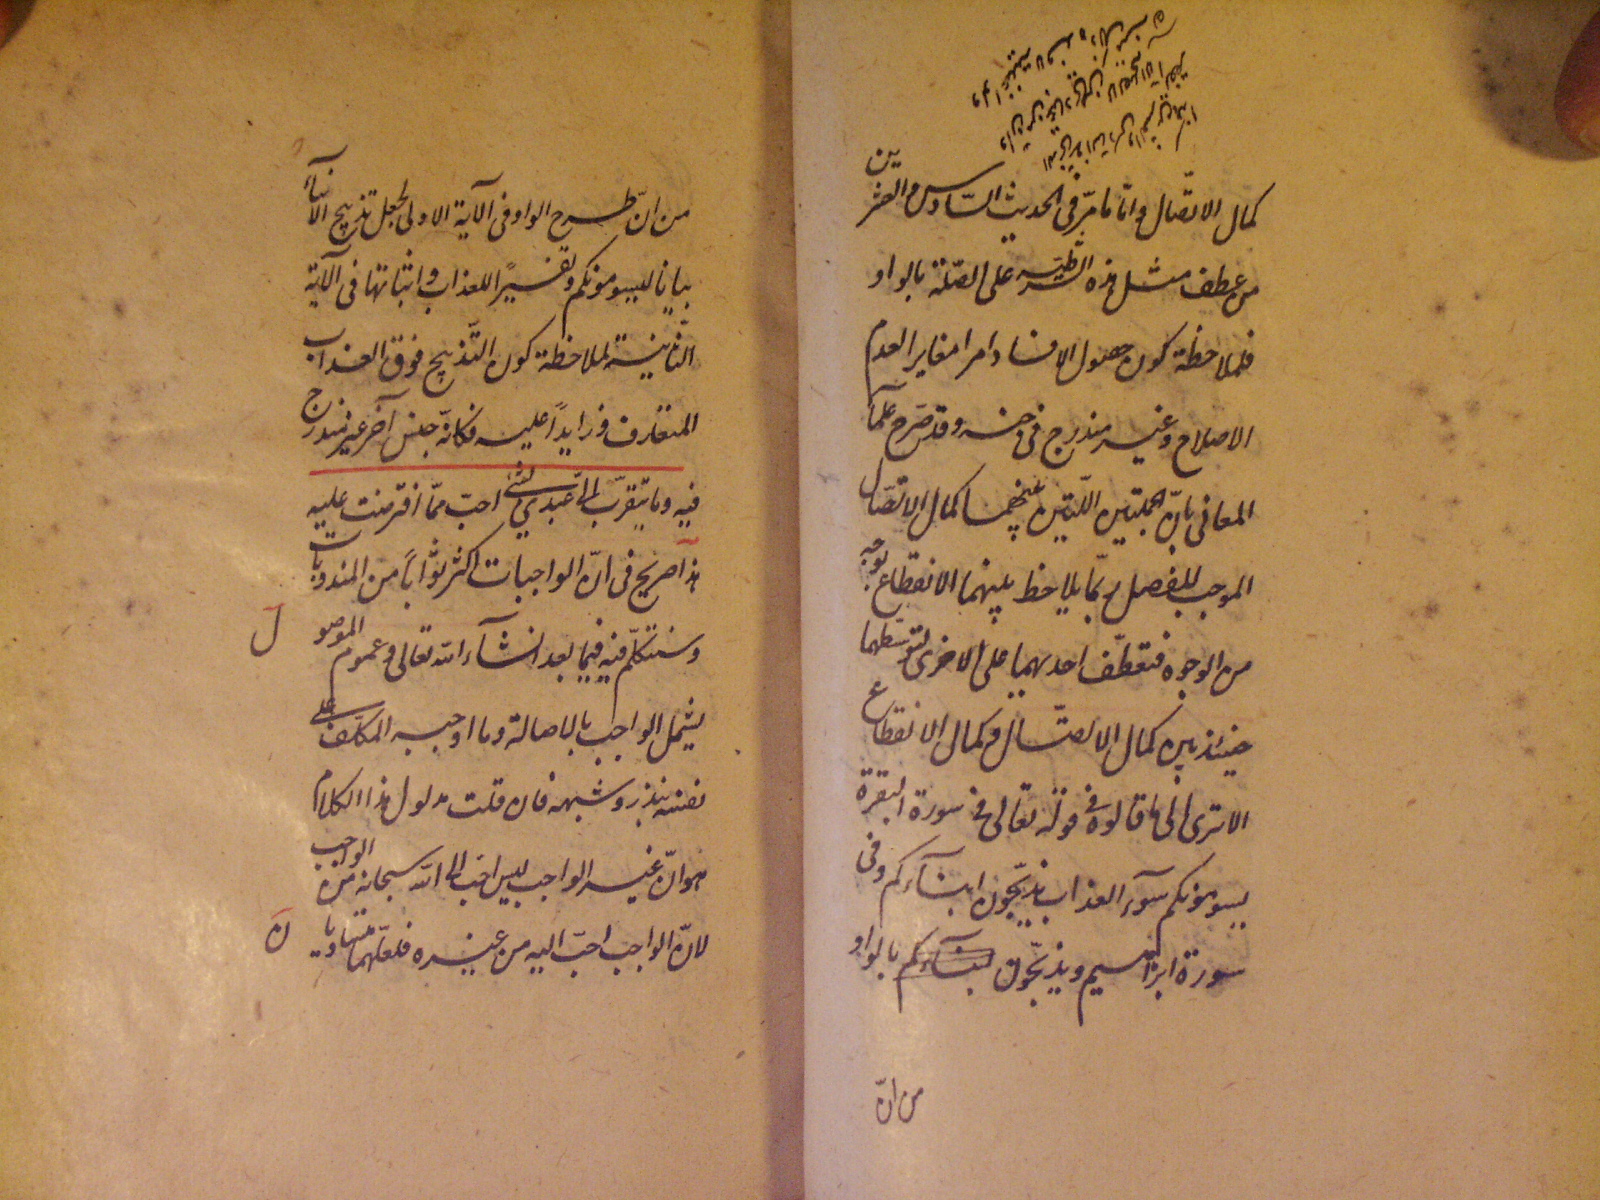 كمال الاتّصال وامّا ما مرّ فى الحديث السّادس والعشرين
من عطف مثل هذه الشّرطيّة على الصّلة بالواو
فلملاحظة كون حصول الافساد امرا مغاير العدم
الاصلاح وغير مندرج فى جنسه وقد صرّح علمآء
المعانى بانّ الجملتين اللّتين بينهما كمال الاتّصال
الموجب للفصل ربّما يلاحظ بينهما الانقطاع بوجه
من الوجوه فتعطف احديهما على الاخرى لتوسّطهما
حينئذ بين كمال الاتّصال وكمال الانقطاع
الا ترى الى ما قالوه فى قوله تعالى فى سورة البقرة
يسومونكم سوٓء العذاب يذبّحون ابنآءكم وفى
سورة ابراهيم ويذبّحون ابنآءكم بالواو
من انّ
من انّ طرح الواو فى الآية الاولى لجعل تذبيح الابنآء
بيانا ليسومونكم وتفسيرًا للعذاب واثباتها فى الآية
الثّانية لملاحظة كون التّذبيح فوق العذاب
المتعارف وزايدًا عليه فكانّه جنس آخر غير مندرج
فيه وما يتقرّب الىّ عبدي بشئ احبّ ممّا افترضت عليه
هذا صريح فى انّ الواجبات اكثر ثوابًا من المندوبات
وسنتكلّم فيه فيما بعد انشآء الله تعالى وعموم الموصول
يشمل الواجب بالاصالة وما اوجبه المكلّف على
نفسه بنذر وشبهه فان قلت مدلول هذا الكلام
هو انّ غير الواجب ليس احبّ الى الله سبحانه من الواجب
لا انّ الواجب احبّ اليه من غيره فلعلّهما متساويان